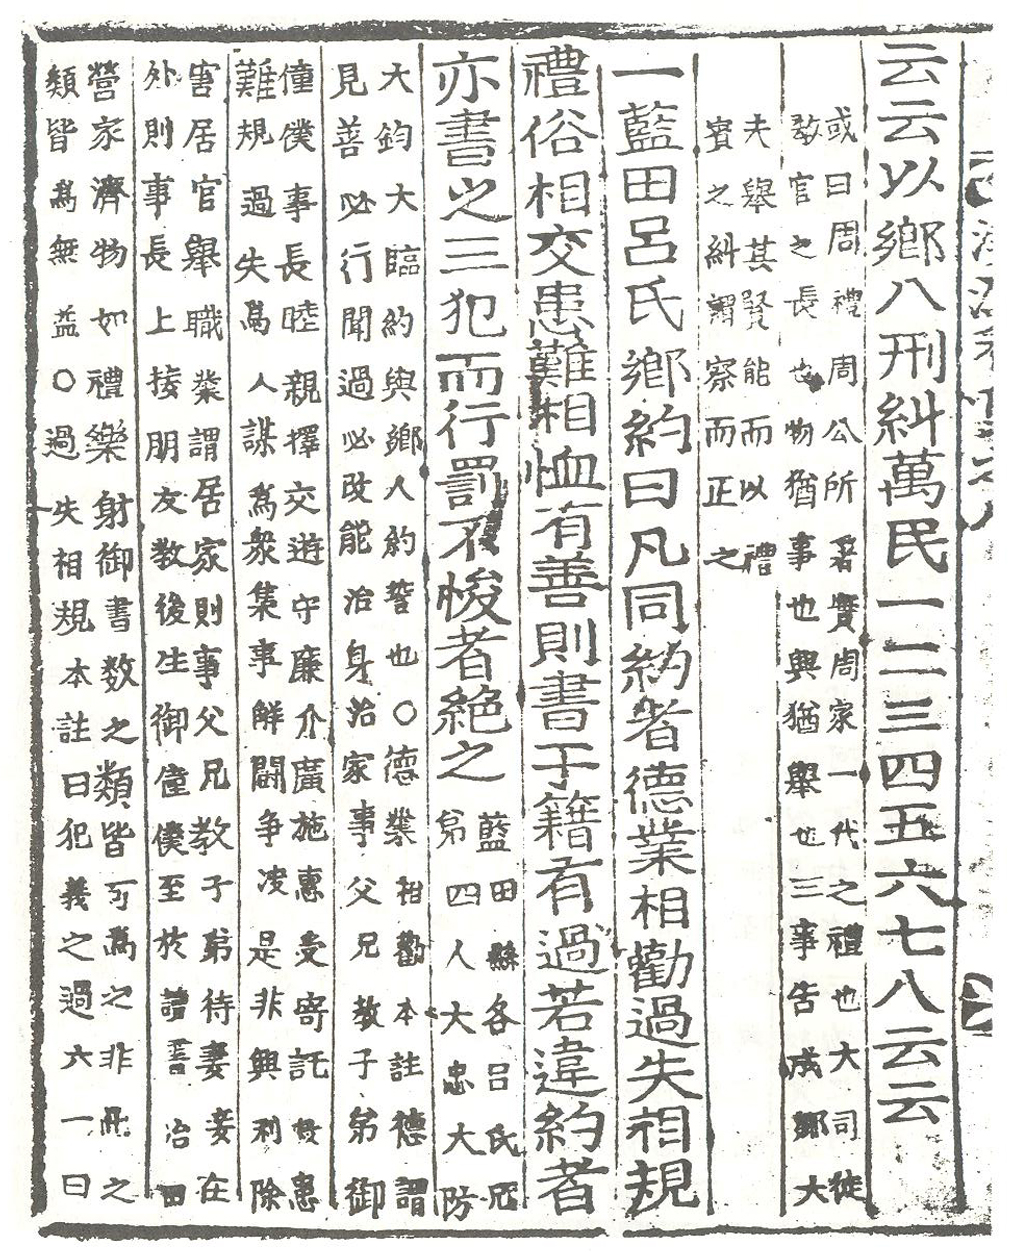 云云以鄉八刑糾萬民一二三四五六七八云云
或曰周禮周公所著實周家一代之禮也大司徒
敎官之長也物猶事也興猶舉也三事告成鄉大
夫舉其賢能而以禮
賓之糾謂察而正之
一藍田呂氏鄉約曰凡同約者德業相勸過失相規
禮俗相交患難相恤有善則書于籍有過若違約者
亦書之三犯而行罰不悛者絶之
藍田縣各呂氏兄
弟四人大忠大防
大鈞大臨約與鄉人約誓也○德業相勸本註德謂
見善必行聞過必改能治身治家事父兄敎子弟御
僮僕事長睦親擇交遊守廉介廣施惠受寄託救患
難規過失爲人謀爲衆集事解鬪爭决是非興利除
害居官舉職業謂居家則事父兄敎子弟待妻妾在
外則事長上接朋友敎後生御僮僕至於讀書治田
營家濟物如禮樂射御書數之類皆可爲之非此之
類皆爲無益○過失相規本註曰犯義之過六一曰